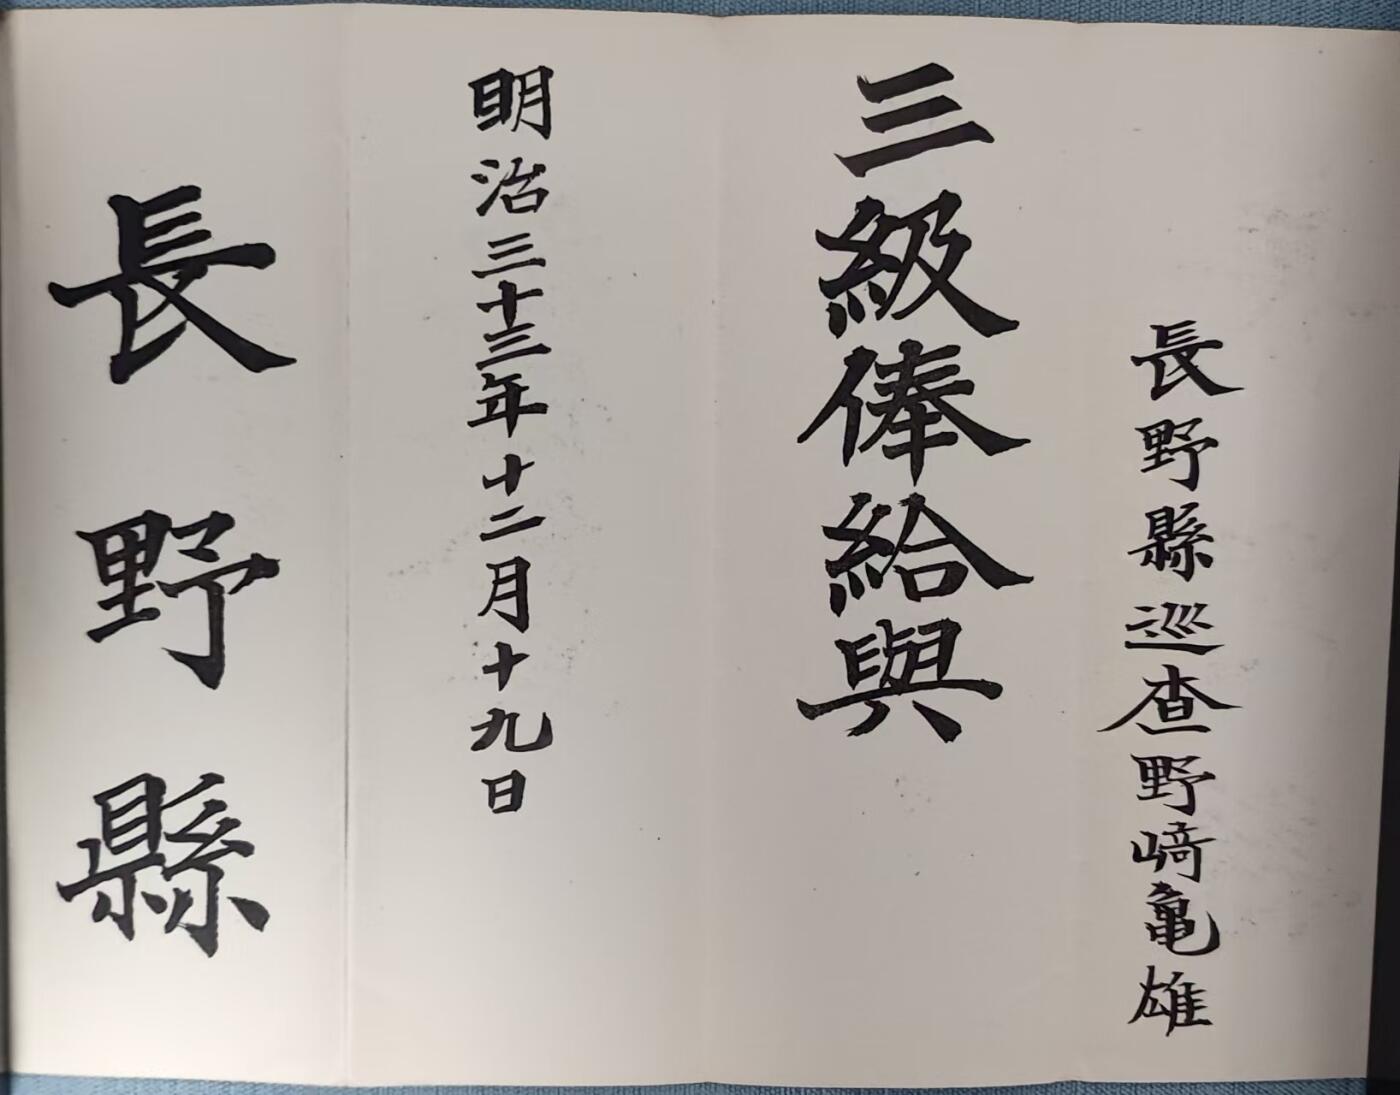 長野縣巡査野﨑亀雄
三級俸給與
明治三十三年十二月十九日
長野縣